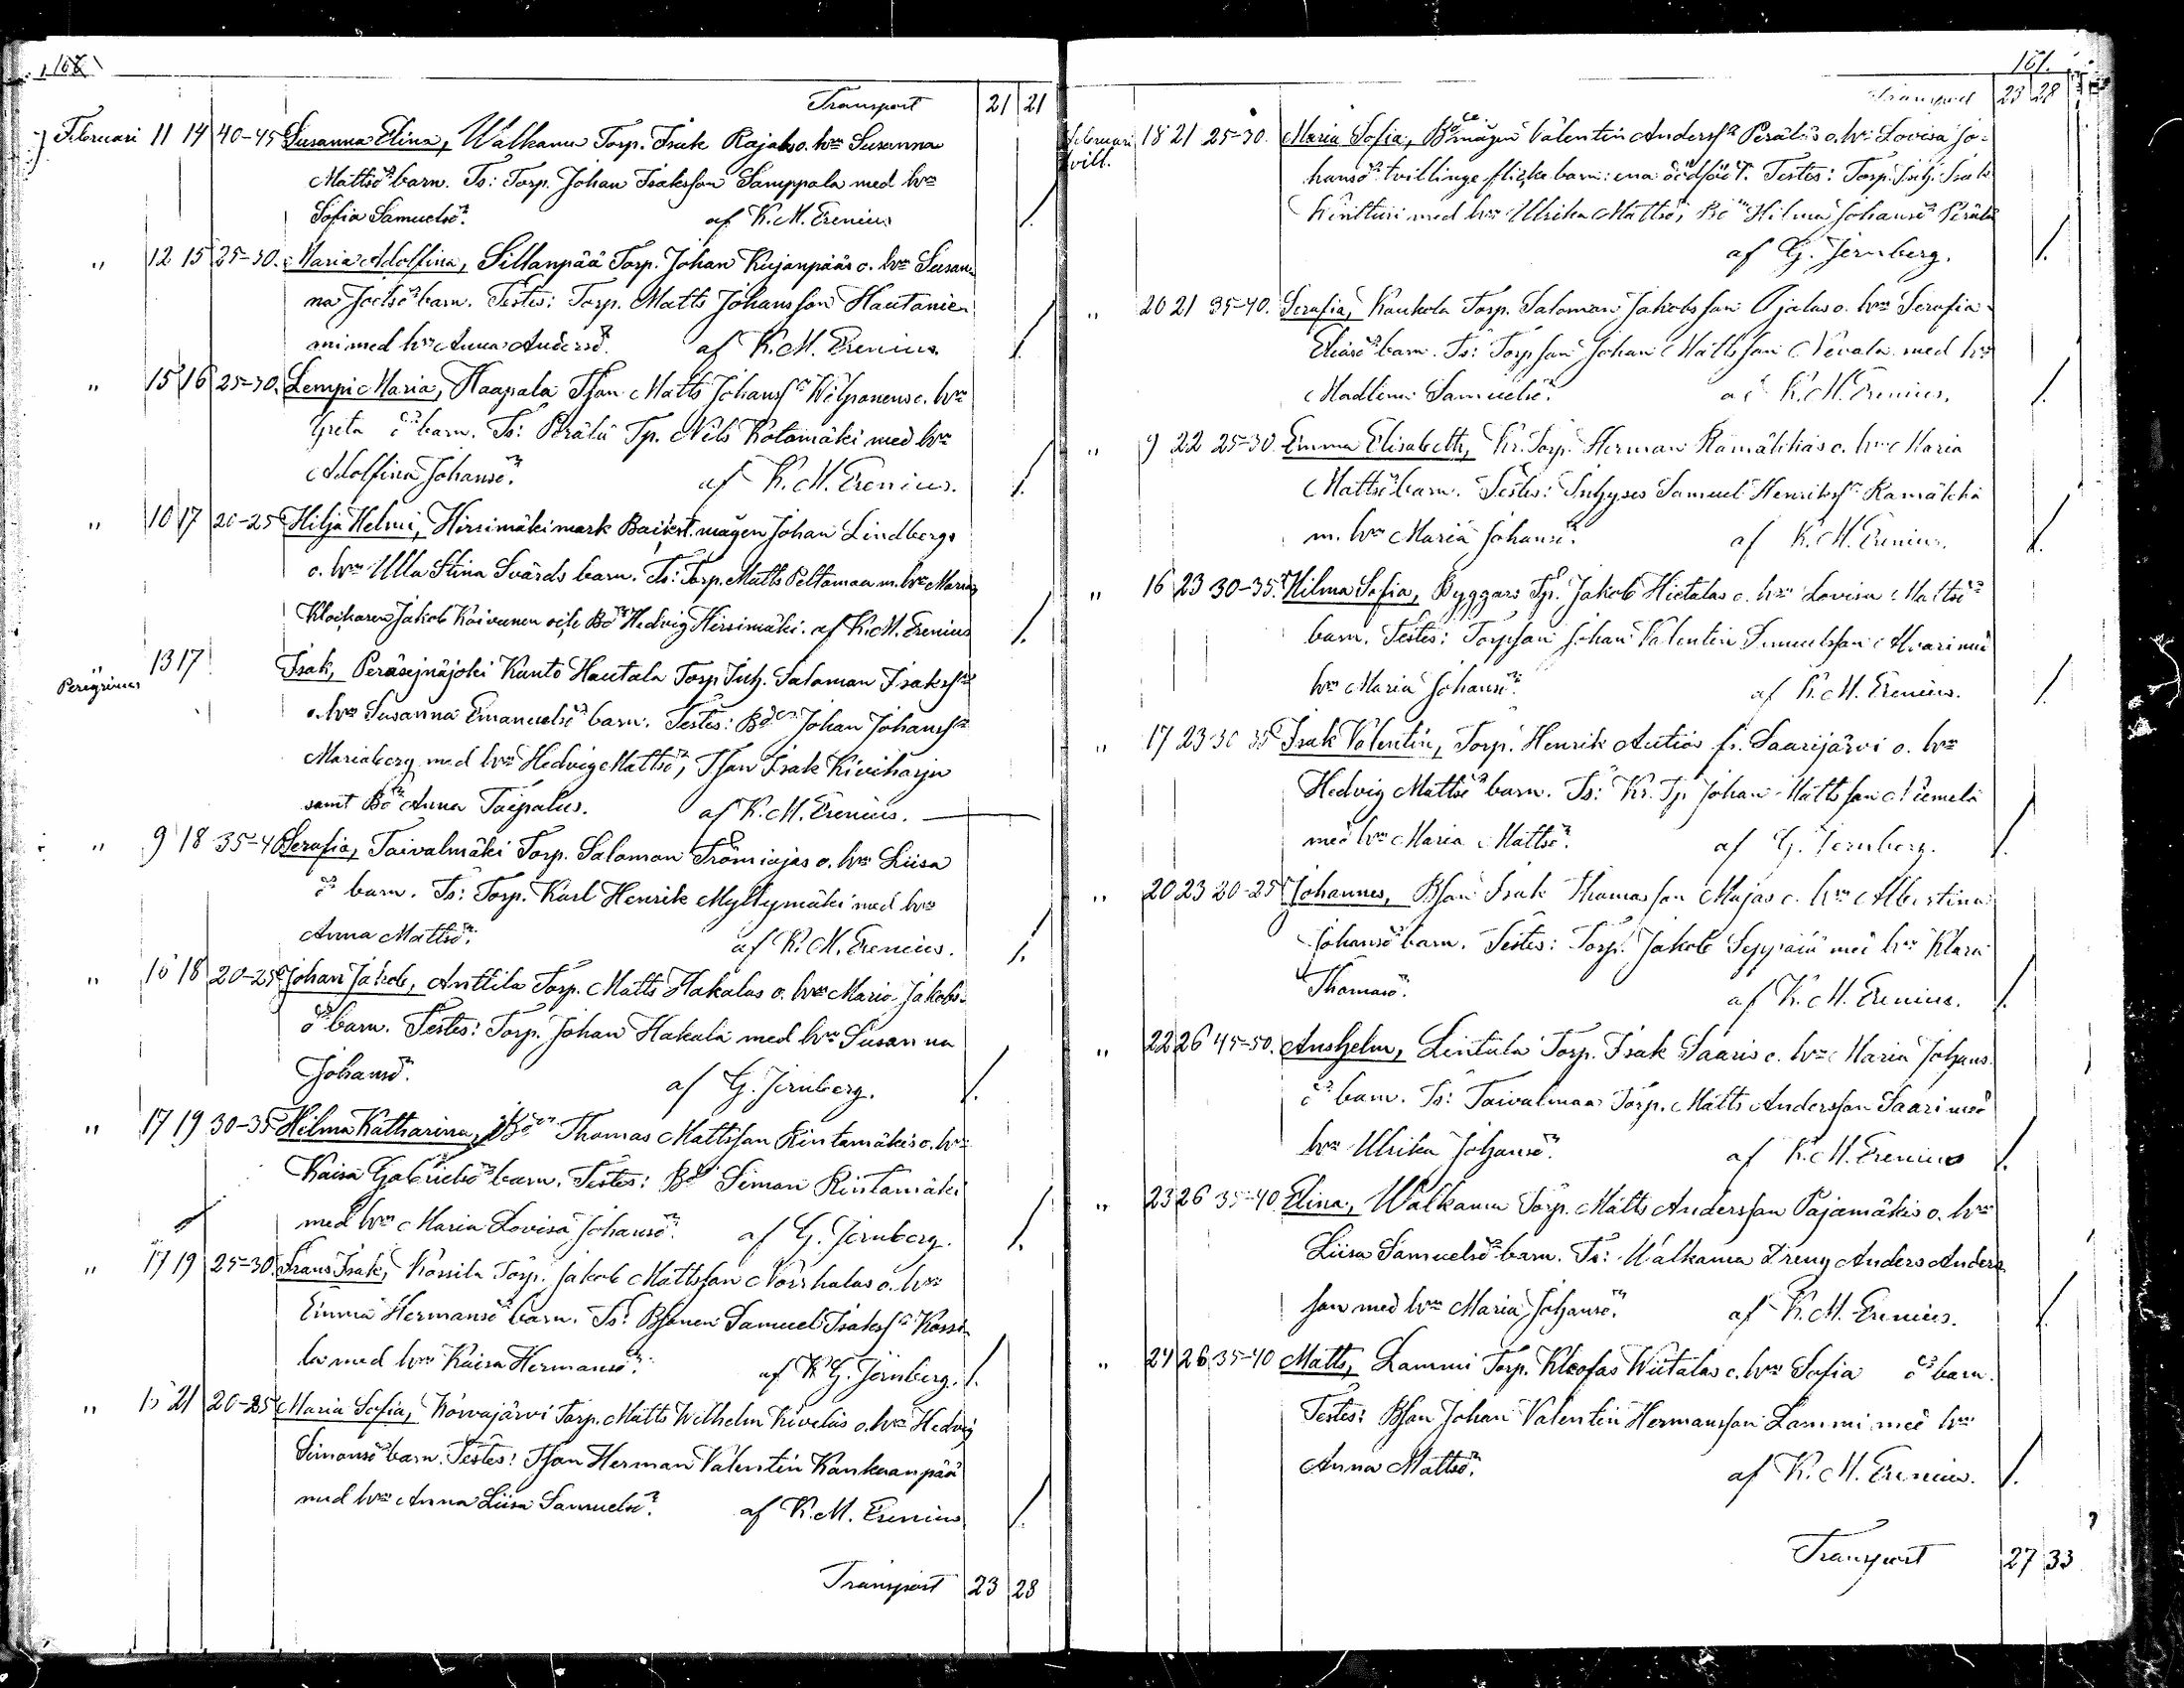 108
Transport 21 21
Februari 11 14 40-45 Susanna Elina, Walkama Torp. Isak Rajalas o. hrs Susanna
Mattsdr barn. Ts: Torp. Johan Isaksson Samppala med hrs
Sofia Samuelsdr. af K. M. Erenius /.
" 12 15 25-30. Maria Adolfina, Sillanpää Torp. Johan Kujanpääs o. hrs Susan-
na Joelsdr barn. Testes: Torp. Matts Johansson Hautanie-
mi med hrs Anna Andersdr. af K. M. Erenius. /.
" 15 16 25-30. Lempi Maria, Haapala Tson Matts Johanss. Wilponens o. hrs
Greta dr barn. Ts: Perälä Tp. Nils Kotamäki med hrs
Adolfina Johansdr. af K. M. Erenius. /.
" 10 17 20-25 Hilja Helmi, Hirsimäki mark mågen Johan Lindbergs
o. hrs Ulla Stina Svärds barn. Ts: Torp. Matts Peltomaa m. hrs Maria,
Klockaren Jakob Koivunen och Bdr Hedvig Hirsimäki. af K. M. Erenius /.
" 13 17 Isak, Peräsejnäjoki Kunto Hautala Torp. Inh. Salomon Isakss.
Peregrinus
o. hrs Susanna Emanuelsdr barn. Testes: Bdn Johan Johanss.
Mariaberg med hrs Hedvig Mattsdr, Tson Isak Kiviharju
samt Bdr Anna Taipalus. af K. M. Erenius.
" 9 18 35-40 Serafia, Taivalmäki Torp. Salomon o. hrs Liisa
dr barn. Ts: Torp. Karl Henrik Myllymäki med hrs
Anna Mattsdr. af K. M. Erenius. /.
" 16 18 20-25 Johan Jakob, Anttila Torp. Matts Hakalas o. hrs Maria Jakobs-
dr barn. Testes: Torp. Johan Hakala med hrs Susanna
Johansdr. af G. Jernberg. /.
" 17 19 30-35 Hilma Katharina, Bdn Thomas Mattsson Rintamäkis o. hrs
Kaisa Gabrielsdr barn. Testes: Bd Simon Rintamäki
med hrs Maria Lovisa Johansdr. af G. Jernberg. /.
" 17 19 25-30. Frans Isak, Kossila Torp. Jakob Mattsson Norrhalas o. hrs
Emma Hermansdr barn. Ts: Bsonen Samuel Isakss. Kossi-
la med hrs Kaisa Hermansdr. af G. Jernberg. /.
" 15 21 20-25 Maria Sofia, Korvajärvi Torp. Matts Wilhelm Kiveläs o. hrs Hedvig
Simonsdr barn. Testes: Tson Herman Valentin Kankaanpää
med hrs Anna Liisa Samuelsdr. af K. M. Erenius /.
Transport 23 28
161.
Transport 23 28
Februari 18 21 25-30. Maria Sofia, mågen Valentin Anderss. Peräläs o. hrs Lovisa Jo-
tvill.
hansdr tvillinge flicka barn: ena dödfödt. Testes: Torp. Inh. Isak
Kinttusi med hrs Ulrika Mattsdr, Bdr Hilma Johansdr Perälä
af G. Jernberg. /.
" 20 21 35-40. Serafia, Kaukola Torp. Salomon Jakobsson Ojalas o. hrs Serafia
Eliasdr barn. Ts: Torpson Johan Mattsson Nevala med hrs
Madlena Samuelsdr. af K. M. Erenius. /.
" 9 22 25-30 Emma Elisabeth, Kr. Torp. Herman Rämäkkäs o. hrs Maria
Mattsdr barn. Testes: Inhyses Samuel Henrikss. Rämäkkä
m. hrs Maria Johansdr. af K. M. Erenius. /.
" 16 23 30-35 Hilma Sofia, Byggars Tp. Jakob Hietalas o. hrs Lovisa Mattsdr
barn. Testes: Torpson Johan Valentin Samuelsson med
hrs Maria Johansdr. af K. M. Erenius. /.
" 17 23 30 35 Isak Valentin, Torp. Henrik Autios fr. Saarijärvi o. hrs
Hedvig Mattsdr barn. Ts: Kr. Tp. Johan Mattsson Niemelä
med hrs Maria Mattsdr. af G. Jernberg. /.
" 20 23 20-25 Johannes, Bson Isak Thomasson Majas o. hrs Albertina
Johansdr barn. Testes: Torp. Jakob Seppälä med hrs Klara
Thomasdr. af K. M. Erenius. /.
" 22 26 45-50. Anshelm, Lintula Torp. Isak Saaris o. hrs Maria Johans-
dr barn. Ts: Taivalmaa Torp. Matts Andersson Saari med
hrs Ulrika Johansdr. af K. M. Erenius /.
" 23 26 35-40 Elina, Walkama Torp. Matts Andersson Pajamäkis o. hrs
Liisa Samuelsdr barn. Ts: Walkama Dreng Anders Anders-
son med hrs Maria Johansdr. af K. M. Erenius. /.
" 24 26 35-40 Matts, Lammi Torp. Kleofas Wiitalas o. hrs Sofia dr barn.
Testes: Bson Johan Valentin Hermansson Lammi med hrs
Anna Mattsdr. af K. M. Erenius. /.
Transport 27 33